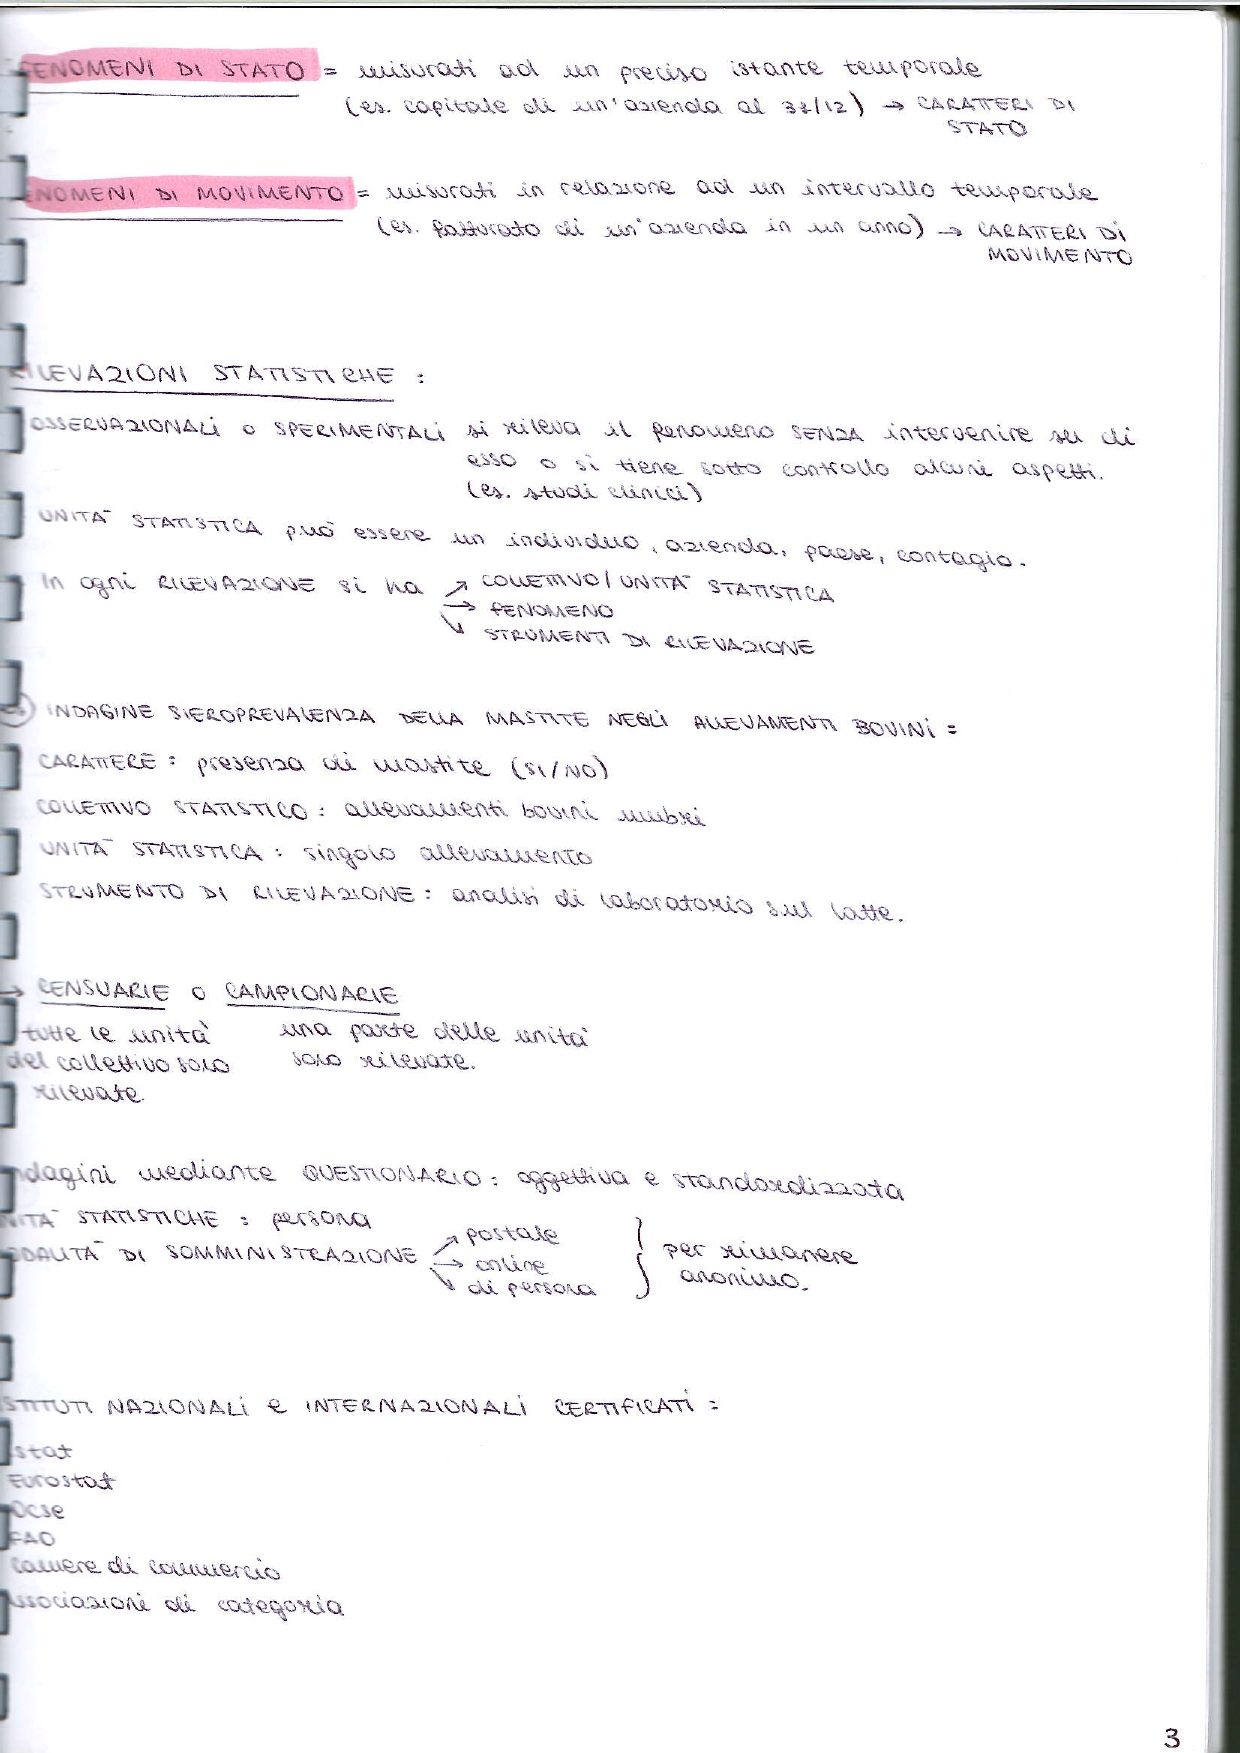 FENOMENI DI STATO = misurati ad un preciso istante temporale
(es. capitale di un'azienda al 31/12) → CARATTERI DI
STATO
ENOMENI DI MOVIMENTO = misurati in relazione ad un intervallo temporale
(es. fatturato di un'azienda in un anno) → CARATTERI DI
MOVIMENTO
RILEVAZIONI STATISTICHE :
OSSERVAZIONALI o SPERIMENTALI si rileva il fenomeno SENZA intervenire su di
esso o si tiene sotto controllo alcuni aspetti.
(es. studi clinici)
UNITA' STATISTICA può essere un individuo, azienda, paese, contagio.
In ogni RILEVAZIONE si ha ↗ COLLETTIVO/UNITA' STATISTICA
→ FENOMENO
↘ STRUMENTI DI RILEVAZIONE
INDAGINE SIEROPREVALENZA DELLA MASTITE NEGLI ALLEVAMENTI BOVINI =
CARATTERE : presenza di mastite (SI/NO)
COLLETTIVO STATISTICO : allevamenti bovini umbri
UNITA' STATISTICA : singolo allevamento
STRUMENTO DI RILEVAZIONE : analisi di laboratorio sul latte.
→ CENSUARIE o CAMPIONARIE
tutte le unità una parte delle unità
del collettivo sono sono rilevate.
rilevate.
ndagini mediante QUESTIONARIO : oggettiva e standardizzata
NITA' STATISTICHE : persona
ODALITA' DI SOMMINISTRAZIONE ↗ postale
→ online
↘ di persona } per rimanere
anonimo.
STITUTI NAZIONALI e INTERNAZIONALI CERTIFICATI :
Istat
Eurostat
Ocse
FAO
Camere di commercio
ssociazioni di categoria
3